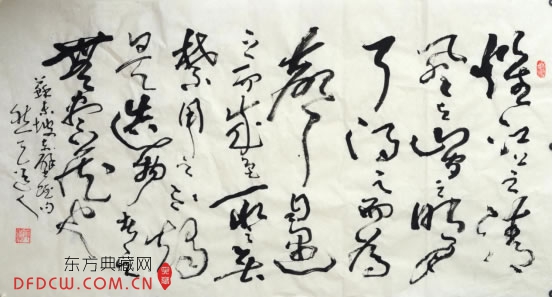 惟江上之清
風与山間之明月
耳得之而為
聲目遇
之而成色取之無
禁用之不竭
是造物者之
無盡藏也
蘇東坡赤壁賦句
东方典藏网
DFDCW.COM.CN